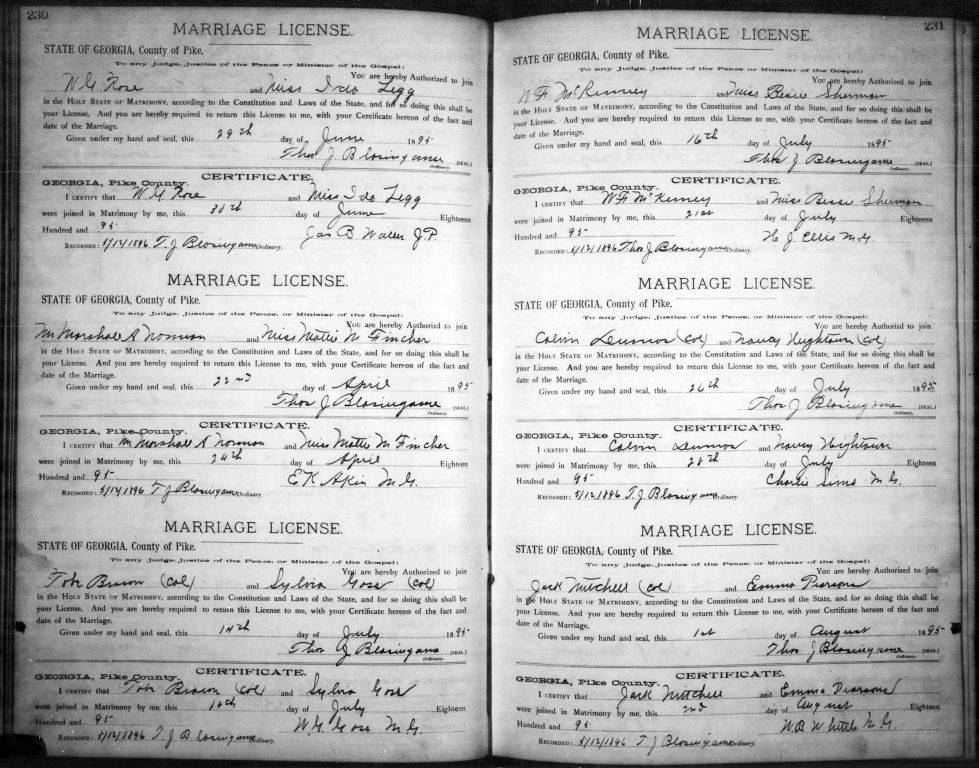 230
MARRIAGE LICENSE.
STATE OF GEORGIA, County of Pike.
To any Judge, Justice of the Peace or Minister of the Gospel:
You are hereby Authorized to join
W G Rose and Miss Ida Legg
in the HOLY STATE OF MATRIMONY, according to the Constitution and Laws of the State, and for so doing this shall be
your License. And you are hereby required to return this License to me, with your Certificate hereon of the fact and
date of the Marriage.
Given under my hand and seal, this 29th day of June 1895
Thos J Blasingame [SEAL.]
Ordinary.
CERTIFICATE.
GEORGIA, Pike County.
I CERTIFY that W G Rose and Miss Ida Legg
were joined in Matrimony by me, this 30th day of June Eighteen
Hundred and 95 Jas B Waller J.P.
RECORDED: 5/12/1896 T. J Blasingame Ordinary.
MARRIAGE LICENSE.
STATE OF GEORGIA, County of Pike.
To any Judge, Justice of the Peace, or Minister of the Gospel:
You are hereby Authorized to join
Mr Marshall A Norman and Miss Mattie M Fincher
in the HOLY STATE OF MATRIMONY, according to the Constitution and Laws of the State, and for so doing this shall be
your License. And you are hereby required to return this License to me, with your Certificate hereon of the fact and
date of the Marriage.
Given under my hand and seal, this 22nd day of April 1895
Thos J Blasingame [SEAL.]
Ordinary.
CERTIFICATE.
GEORGIA, Pike County.
I CERTIFY that Mr Marshall A Norman and Miss Mattie M Fincher
were joined in Matrimony by me, this 24th day of April Eighteen
Hundred and 95 E K Akin M.G.
RECORDED: 5/12/1896 T. J Blasingame Ordinary.
MARRIAGE LICENSE.
STATE OF GEORGIA, County of Pike.
To any Judge, Justice of the Peace, or Minister of the Gospel:
You are hereby Authorized to join
Tobe (Col) and Sylvia Goss (Col)
in the HOLY STATE OF MATRIMONY, according to the Constitution and Laws of the State, and for so doing this shall be
your License. And you are hereby required to return this License to me, with your Certificate hereon of the fact and
date of the Marriage.
Given under my hand and seal, this 14th day of July 1895
Thos J Blasingame [SEAL.]
Ordinary.
CERTIFICATE.
GEORGIA, Pike County.
I CERTIFY that Tobe (Col) and Sylvia Goss
were joined in Matrimony by me, this day of July Eighteen
Hundred and 95 W. G. Goss M G.
RECORDED: 5/12/1896 T J Blasingame Ordinary.
231
MARRIAGE LICENSE.
STATE OF GEORGIA, County of Pike.
To any Judge, Justice of the Peace or Minister of the Gospel:
You are hereby Authorized to join
W F McKinney and Miss Bessie Sherman
in the HOLY STATE OF MATRIMONY, according to the Constitution and Laws of the State, and for so doing this shall be
your License. And you are hereby required to return this License to me, with your Certificate hereon of the fact and
date of the Marriage.
Given under my hand and seal, this 16th day of July 1895
Thos J Blasingame [SEAL.]
Ordinary.
CERTIFICATE.
GEORGIA, Pike County.
I CERTIFY that W F McKinney and Miss Bessie Sherman
were joined in Matrimony by me, this 21st day of July Eighteen
Hundred and 95 H. J. Ellis M.G.
RECORDED: 5/12/1896 Thos J Blasingame Ordinary.
MARRIAGE LICENSE.
STATE OF GEORGIA, County of Pike.
To any Judge, Justice of the Peace, or Minister of the Gospel:
You are hereby Authorized to join
Calvin (Col) and Nancy Hightown (Col)
in the HOLY STATE OF MATRIMONY, according to the Constitution and Laws of the State, and for so doing this shall be
your License. And you are hereby required to return this License to me, with your Certificate hereon of the fact and
date of the Marriage.
Given under my hand and seal, this 26th day of July 1895
Thos J Blasingame [SEAL.]
Ordinary.
CERTIFICATE.
GEORGIA, Pike County.
I CERTIFY that Calvin and Nancy Hightown
were joined in Matrimony by me, this 28th day of July Eighteen
Hundred and 95 Charlie Sims M. G.
RECORDED: 5/12/1896 T. J Blasingame Ordinary.
MARRIAGE LICENSE.
STATE OF GEORGIA, County of Pike.
To any Judge, Justice of the Peace, or Minister of the Gospel:
You are hereby Authorized to join
Jack Mitchell (Col) and Emma Pearsons
in the HOLY STATE OF MATRIMONY, according to the Constitution and Laws of the State, and for so doing this shall be
your License. And you are hereby required to return this License to me, with your Certificate hereon of the fact and
date of the Marriage.
Given under my hand and seal, this 1st day of August 1895
Thos J Blasingame [SEAL.]
Ordinary.
CERTIFICATE.
GEORGIA, Pike County.
I CERTIFY that Jack Mitchell and Emma Pearsons
were joined in Matrimony by me, this 2nd day of August Eighteen
Hundred and 95 W. B Whittle M.G.
RECORDED: 5/12/1896 T J Blasingame Ordinary.